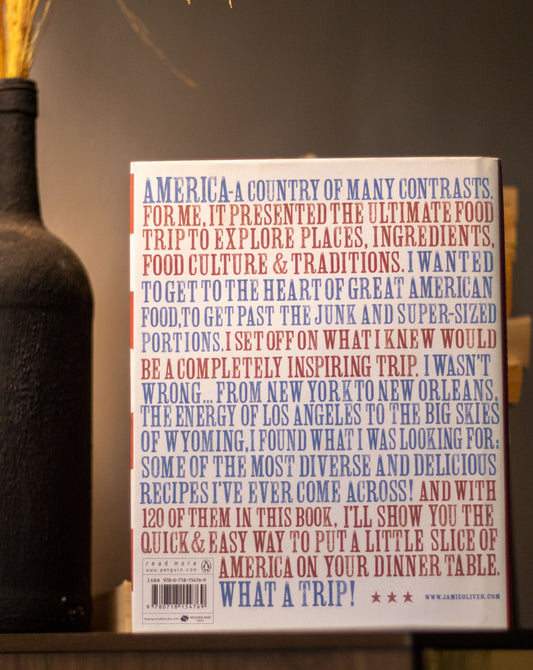 AMERICA-A COUNTRY OF MANY CONTRASTS.
FOR ME, IT PRESENTED THE ULTIMATE FOOD
TRIP TO EXPLORE PLACES, INGREDIENTS,
FOOD CULTURE & TRADITIONS. I WANTED
TO GET TO THE HEART OF GREAT AMERICAN
FOOD, TO GET PAST THE JUNK AND SUPER-SIZED
PORTIONS. I SET OFF ON WHAT I KNEW WOULD
BE A COMPLETELY INSPIRING TRIP. I WASN'T
WRONG... FROM NEW YORK TO NEW ORLEANS,
THE ENERGY OF LOS ANGELES TO THE BIG SKIES
OF WYOMING, I FOUND WHAT I WAS LOOKING FOR:
SOME OF THE MOST DIVERSE AND DELICIOUS
RECIPES I'VE EVER COME ACROSS! AND WITH
120 OF THEM IN THIS BOOK, I'LL SHOW YOU THE
QUICK & EASY WAY TO PUT A LITTLE SLICE OF
AMERICA ON YOUR DINNER TABLE.
WHAT A TRIP!
WWW.JAMIEOLIVER.COM
read more
www.penguin.com
ISBN 978-0-718-15476-9
9 780718 154769
WOODLAND